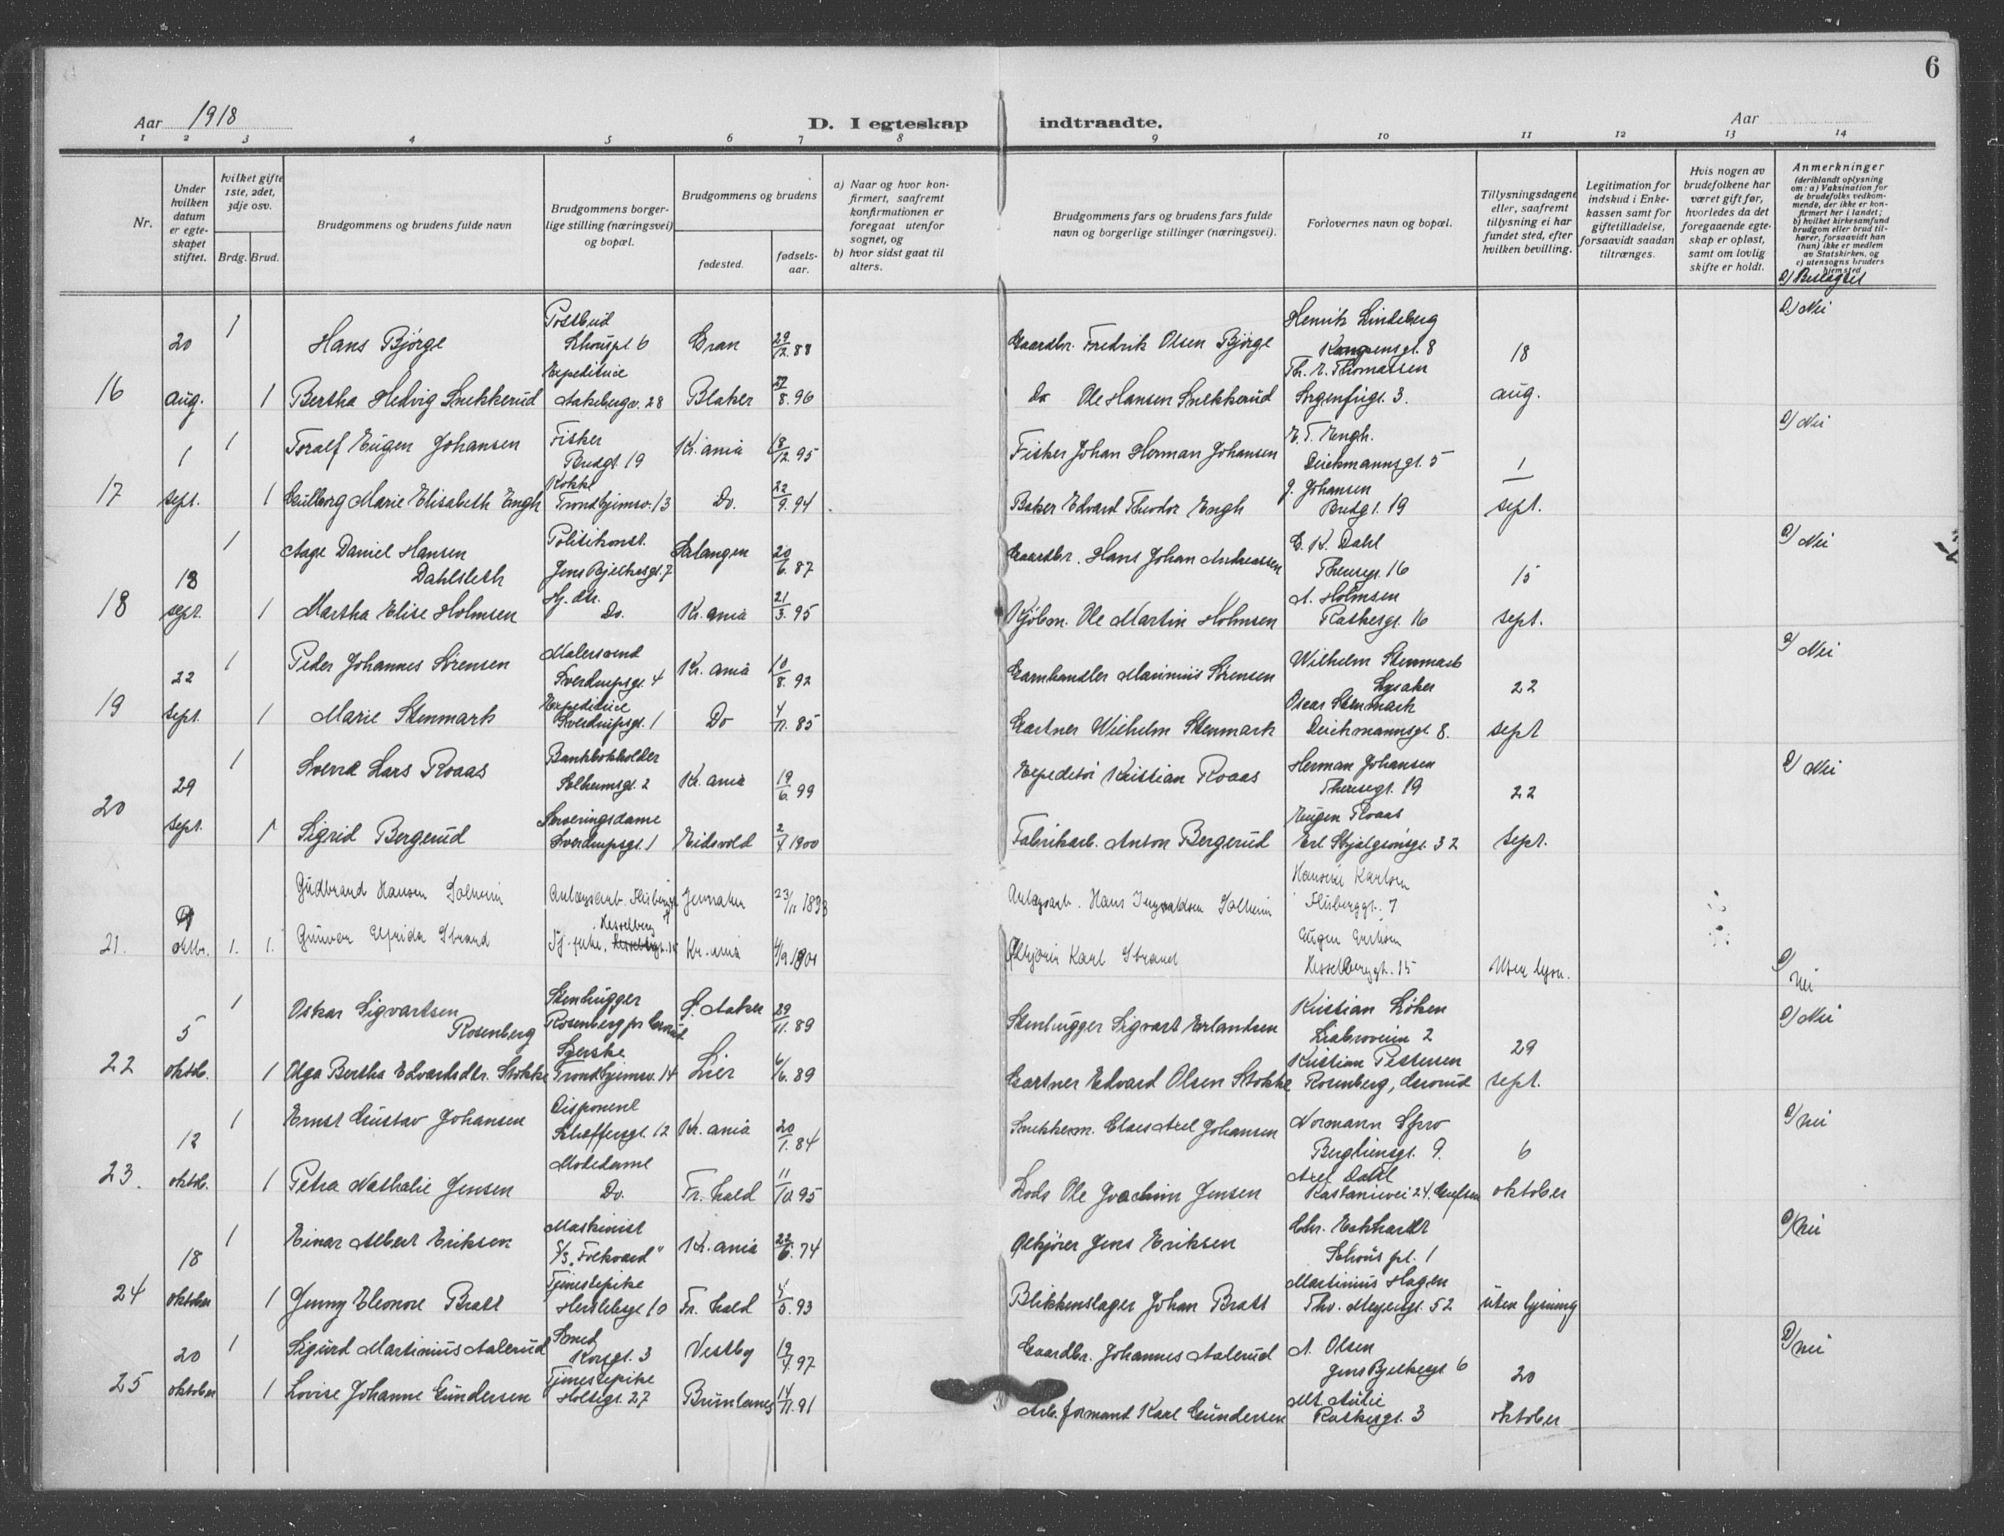 6
Aar 1918
D. I egteskap indtraadte.
Aar
1 2 3 4 5 6 7 8 9 10 11 12 13 14
Nr.
Under hvilken datum er egteskapet stiftet.
hvilket gifte 1ste, 2det, 3dje osv.
Brdg. Brud.
Brudgommens og brudens fulde navn
Brudgommens borgerlige stilling (næringsvei) og bopæl.
Brudgommens og brudens
fødested.
fødselsaar.
a) Naar og hvor konfirmert, saafremt konfirmationen er foregaat utenfor sognet, og
b) hvor sidst gaat til alters.
Brudgommens fars og brudens fars fulde navn og borgerlige stillinger (næringsvei).
Forlovernes navn og bopæl.
Tillysningsdagene eller, saafremt tillysning ei har fundet sted, efter hvilken bevilling.
Legitimation for indskud i Enkekassen samt for giftetilladelse, forsaavidt saadan tiltrænges.
Hvis nogen av brudefolkene har været gift før, hvorledes da det foregaaende egteskap er opløst, samt om lovlig skifte er holdt.
Anmerkninger
(deriblandt oplysning om: a) Vaksination for de brudefolks vedkommende, der ikke er konfirmert her i landet; b) hvilket kirkesamfund brudgom eller brud tilhører, forsaavidt han (hun) ikke er medlem av Statskirken, og c) utensogns bruders hjemsted
2) Beslegtet
20 1 Hans Bjørge Postbud Schouspl 6 Gran 29/12.88 Gaardbr. Fredrik Olsen Bjørge Henrik Lindeberg Kampensgt. 8 18 2) Nei
16 aug. 1 Bertha Hedvig Snekkerud Expeditrice Aakebergv. 28 Blaker 27/8.96 Do Ole Hansen Snekkerud Th. E. Thomassen Sorgenfrigt. 3. aug.
1 1 Toralf Eugen Johansen Fisker Brudgt. 19 Kr.ania 18/12.95 Fisker Johan Herman Johansen E. T. Engh. Deichmannsgt. 5 1 2) Nei
17 sept. 1 Gulborg Marie Elisabeth Engh Kokke Trondhjemsv. 13 Do. 22/9.94 Baker Edvard Theodor Engh J. Johansen Brudgt. 19 sept.
18 1 Aage Daniel Hansen Dahlsleth Politikonst. Jens Bjelkesgt. 7 Salangen 20/6.87 Gaardbr. Hans Johan Andreassen C. K. Dahl Theresgt. 16 15 2) Nei
18 sept. 1 Martha Elise Holmsen Hj. dtr. Do. Kr.ania 21/3.95 Kjøbm. Ole Martin Holmsen A. Holmsen Ratkesgt. 16 sept.
22 1 Peder Johannes Sørensen Malersvend Sverdrupsgt. 4 Kr.ania 10/8.92 Garnhandler Marinius Sørensen Wilhelm Stenmark Lysaker 22 2) Nei
19 sept. 1 Marie Stenmark Expeditrice Sverdrupsgt. 1 Do 4/11.85 Gartner Wilhelm Stenmark Oscar Stenmark Deichmannsgt. 8. sept
29 1 Svend Lars Roaas Bankbokholder Solheimsgt. 2 Kr.ania 19/6.99 Expeditør Kristian Roaas Herman Johansen Theresegt. 19 22 2) Nei
20 sept. 1 Sigrid Bergerud Serveringsdame Sverdrupsgt. 1 Eidsvold 2/4 1900 Fabrikarb. Anton Bergerud Eugen Roaas Erl. Skjalgsønsgt. 32 sept.
Gudbrand Hansen Solheim Anlægsarb. Jevnaker 23/11 Anlægsarb. Hans Ingvaldsen Solheim Karlsen 7
21. oktbr. 1. 1. Gunvor Elfrida Strand Kr.ania Karl Strand Eugen Hesselberggt. 15 Uten lysn. 2) Nei
5 1 Oskar Sigvartsen Rosenberg Stenhugger Rosenberg pr Grorud Ø. Aaker 29/11.89 Stenhugger Sigvart Erlandsen Kristian Løken Liabroveien 2 29 2) Nei
22 oktob. 1 Olga Bertha Edvardsdtr. Stokke Syerske Trondhjemsv. 14 Lier 6/6.89 Gartner Edvard Olsen Stokke Kristian Pettersen Rosenberg, Grorud sept.
12 1 Ernst Gustav Johansen Disponent Schæffersgt. 12 Kr.ania 20/1.84 Snekkerm. Claes Axel Johansen Normann Spro Bergliensgt. 9. 6 2) Nei
23. oktob. 1 Petra Nathalie Jensen Motedame Do. Fr. hald 11/10.95 Lods Ole Joachim Jensen Axel Dahl Kastanievei 24. oktober
18 1 Einar Albert Eriksen Maskinist S/S „Folkvard" Kr.ania 22/6.74 Ølkjører Jens Eriksen Chr. Eckhardt Schous pl. 1 2) Nei
24 oktober 1 Jenny Eleonore Bratt Tjenestepike Herslebsgt. 10 Fr. hald 4/5.93 Blikkenslager Johan Bratt Martinius Hagen Thv. Meyersgt. 52 uten lysning
20 1 Sigurd Martinius Aalerud Smed Korsgt. 3 Vestby 19/4.97 Gaardbr. Johannes Aalerud A. Olsen Jens Bjelkesgt 6 20 2) Nei
25 oktober 1 Lovise Johanne Gundersen Tjenestepike Holtegt. 27 Brunlanes 14/11.91 Arb. formand Karl Gundersen Mt. Aulie Ratkesgt. 3 oktober